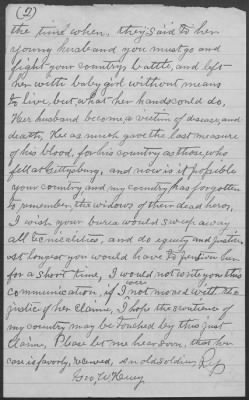 (2)
the time when, they said to her
young husband you must go and
fight your country, battle, and left
her with baby girl without means
to live, but what her hands could do.
Her husband become a victim of disease, and
death, He as much gave the last measure
of his blood, for his country as those, who
fell at Gettysburg, and now is it possible
your country and my country has forgotten
to remember the widows of their dead heros,
I wish your burea would sweep away
all tecnicalities, and do equity and justice,
at longest you would have to pension her
for a short time, I would not write you this
communication, if I were not moved with the
justice of her claime, I hope the
my country may be touched by this just
claime, Please let me hear down, that her
case is favorly, received, an old soldier,
Geo, W